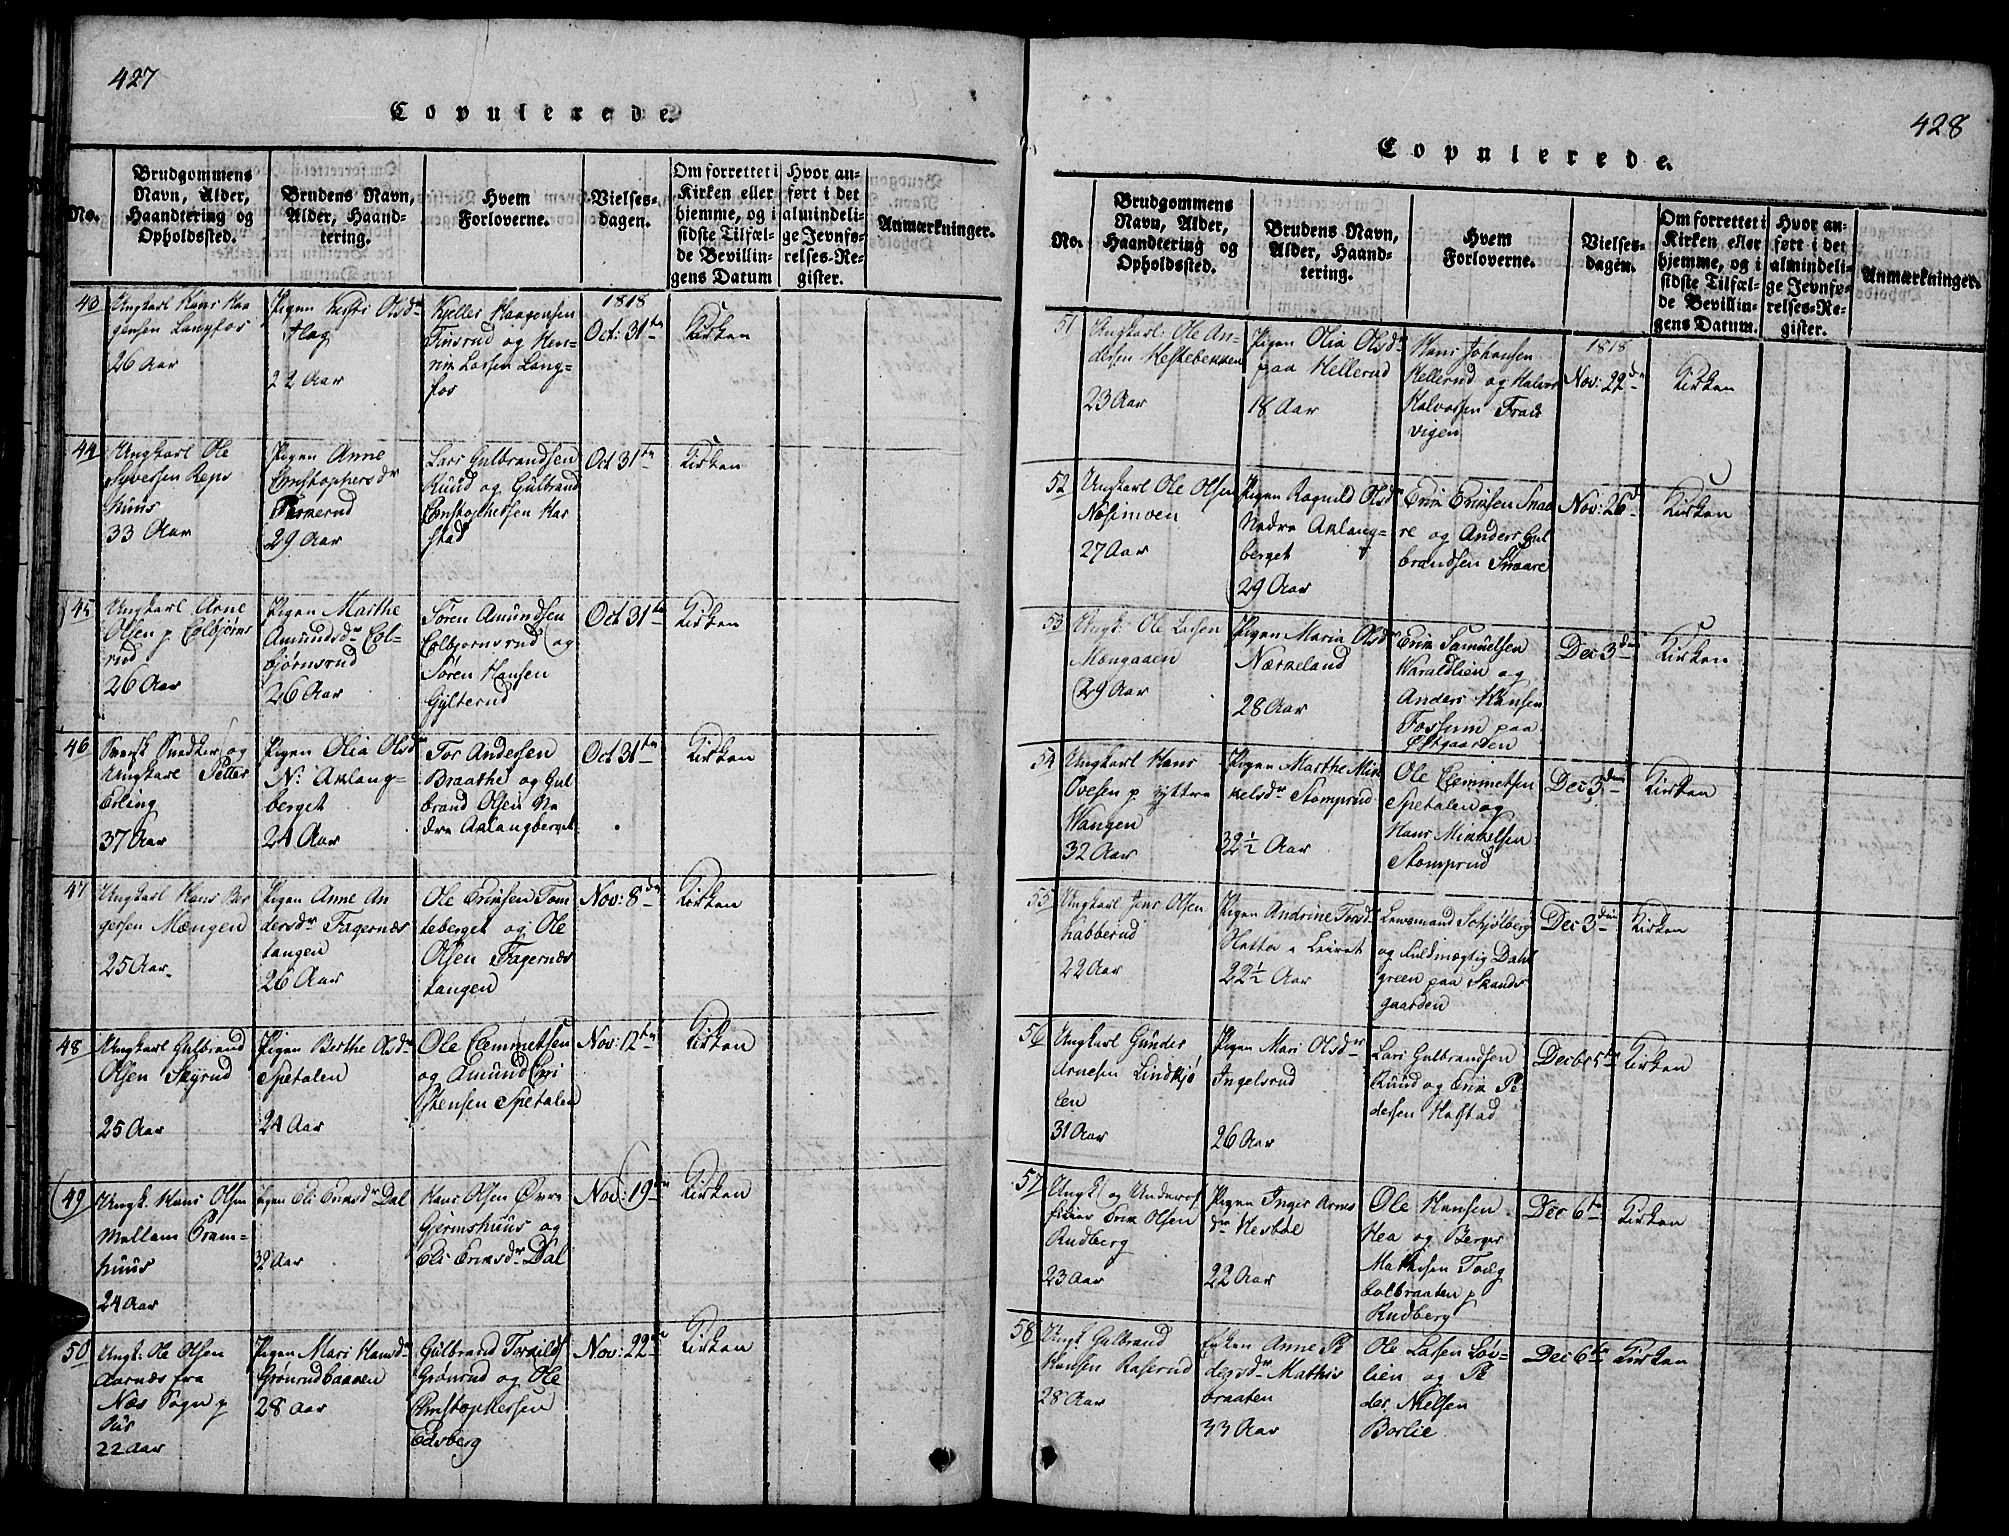 427
Copulerede.
No.
Brudgommens
Navn, Alder,
Haandtering og
Opholdssted.
Brudens Navn,
Alder, Haand-
tering.
Hvem
Forloverne.
Vielses-
dagen.
Om forrettet i
Kirken eller
hjemme, og i
sidste Tilfæl-
de Bevillin-
gens Datum
Hvor an-
ført i det
almindeli-
ge Jevnfø-
relses-Re-
gister.
Anmærkninger.
43
Ungkarl Hans Haa
gensen Langfos
26 Aar
Pigen Kisti Olsdr
Hag
22 Aar
Kjeller Haagensen
Finsrud og Hen-
rik Larsen Lang-
fos
1818
Oct: 31te
Kirken
44
Ungkarl Ole
Syversen Reps
huus
33 Aar
Pigen Anne
Christophersdr
29 Aar
Lars Gulbrandsen
Ruud og Gulbrand
Christophersen Har
stad
Oct 31te
Kirken
45
Ungkarl Arne
Olsen p. Colbjørns
rud
26 Aar
Pigen Marthe
Amundsdr Col-
bjørnsrud
26 Aar
Søren Amundsen
Colbjørnsrud og
Søren Hansen
Gylterud
Oct 31te
Kirken
46
Svensk Snedker og
Ungkarl Petter
Erling
37 Aar
Pigen Olia Olsdr
N: Aklang-
berget
24 Aar
Tor Andersen
Braathe og Gul
brand Olsen Ne
dre Aklangberget
Oct 31te
Kirken
47
Ungkarl Hans Bør
gersen Mængen
25 Aar
Pigen Anne An
dersdr Fagernæs
tangen
26 Aar
Ole Eriksen Tom
teberget og Ole
Olsen Fagernæs
tangen
Nov: 8de
Kirken
48
Ungkarl Gulbrand
Olsen Skyrud
25 Aar
Pigen Berthe Olsdr
Spetalen
24 Aar
Ole Clemmetsen
og Amund Cri
stensen Spetalen
Nov: 12te
Kirken
49
Ungk. Hans Olsen
Mellem Gram-
huus
24 Aar
Pigen Eli Eriksdr Dal
32 Aar
Hans Olsen Øvre
Gjermshuus og
Eli Eriksdr Dal
Nov: 19de
Kirken
50
Ungk: Ole Olsen
Aarnæs fra
Næs Sogn p
22 Aar
Pigen Mari Hansdr
Grønrudbaaen
28 Aar
Gulbrand Torkilds
Grønrud og Ole
Christophersen
Edsberg
Nov: 22de
Kirken
428
Copulerede.
No.
Brudgommens
Navn, Alder,
Haandtering og
Opholdssted.
Brudens Navn,
Alder, Haand-
tering.
Hvem
Forloverne.
Vielses-
dagen.
Om forrettet i
Kirken eller
hjemme, og i
sidste Tilfæl-
de Bevillin-
gens Datum.
Hvor an-
ført i det
almindeli-
ge Jevnfø-
relses-Re-
gister.
Anmærkninger.
51
Ungkarl: Ole An-
dersen Hestebekken
23 Aar
Pigen Olia Olsdr
paa Hellerud
18 Aar
Hans Johansen
Hellerud og Halvor
Halvorsen
vigen
1818
Nov: 22de
Kirken
52
Ungkarl Ole Olsen
Næsimoen
27 Aar
Pigen Ragnild Olsdr
Nedre Aklang-
berget
29 Aar
Erik Eriksen Snaa
re og Anders Gul
brandsen Snaare
Nov: 26d
Kirken
53
Ungk: Ole Larsen
Mængaaen
29 Aar
Pigen Maria Olsdr
Nærkeland
28 Aar
Erik Samuelsen
Varaldlien og
Anders Hansen
Fossum paa
Østgaarden
Dec 3die
Kirken
54
Ungkarl Hans
Ovesen p. yttre
Vangen
32 Aar
Pigen Marthe Mik
kelsdr Stomprud
32½ Aar
Ole Clemmetsen
Spetalen og
Hans Mikkelsen
Stomprud
Dec 3die
Kirken
55
Ungkarl Jens Olsen
habberud
22 Aar
Pigen Andrine Torsdr
Leiret
22½ Aar
Lensmand Schjølberg
og Fuldmægtig Dahl
green paa Skands
gaarden
Dec 3die
Kirken
56
Ungkarl Gunder
Arnesen Lindkjø
len
31 Aar
Pigen Mari Olsdr
Ingelsrud
26 Aar
Lars Gulbrandsen
Ruud og Erik Pe
dersen Harstad
Decbr 5te
Kirken
57
Ungk. og Underof
ficier Erik Olsen
Rudberg
23 Aar
Pigen Inger Arnes
dr Hestøe
22 Aar
Ole Hansen
Hea og Berger
Mathisen Torg
colbraaten p
Rudberg
Dec 6te
Kirken
58
Ungk. Gulbrand
Hansen Kaserud
28 Aar
Enken Anne Pe
dersdr Mathis
braaten
33 Aar
Ole Larsen Løv-
lien og Pe
der Nielsen
Borlie
Dec 6te
Kirken